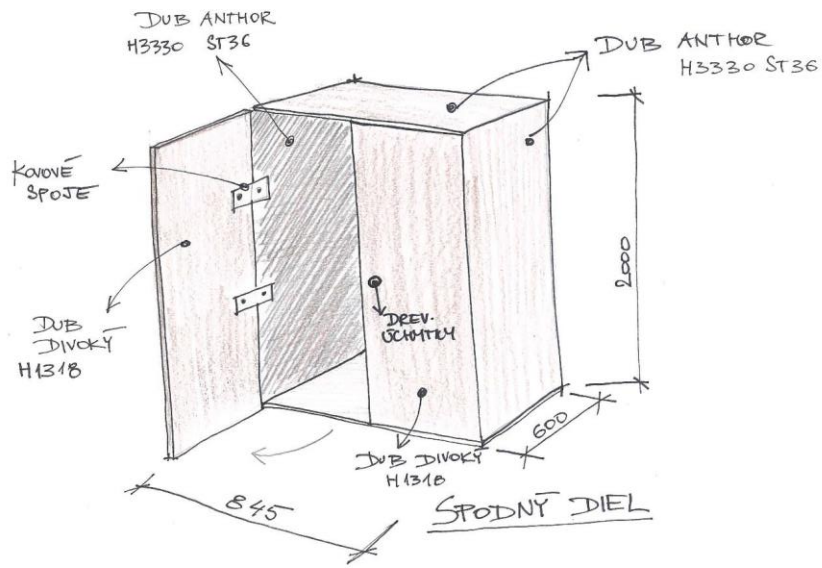 DUB ANTHOR
H3330 ST36
DUB ANTHOR
H3330 ST36
KOVOVÉ
SPOJE
DUB
DIVOKÝ
H1318
DREV.
ÚCHYTKY
DUB DIVOKÝ
H1318
2000
600
845
SPODNÝ DIEL